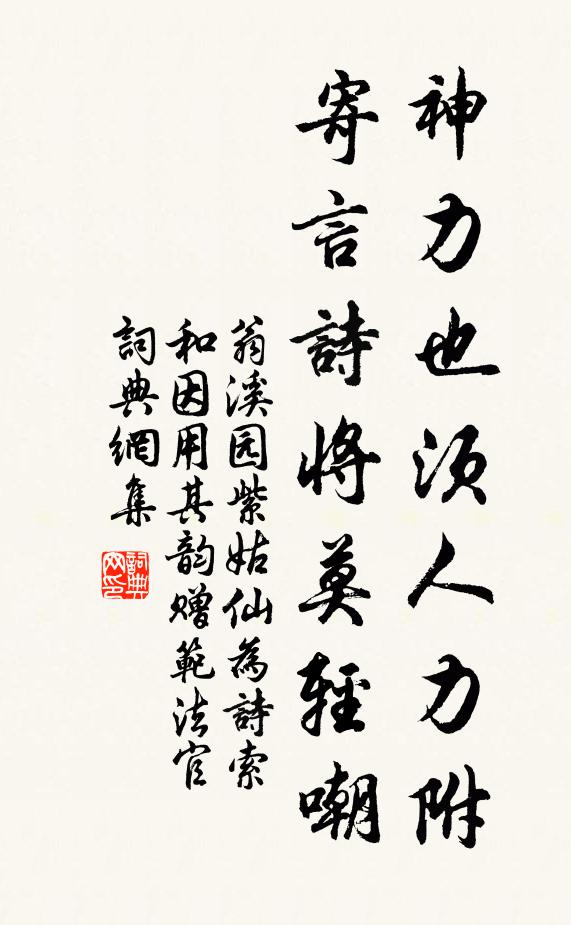 神力也須人力附
寄言詩將莫輕嘲
翁溪园紫姑仙為詩索
和因用其韵贈範法官
詞典網集
詞典
网印